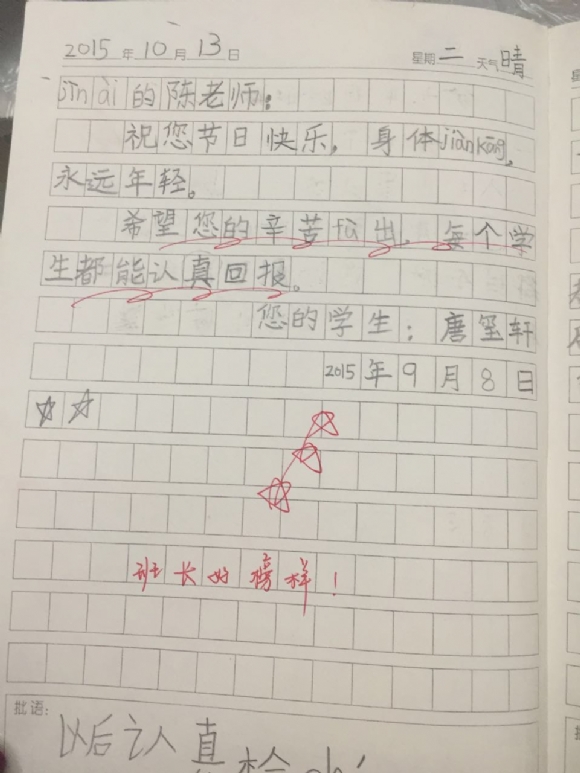 2015年10月13日 星期二 天气晴
jīn ài的陈老师：
祝您节日快乐，身体jiànkāng，
永远年轻。
希望您的辛苦付出，每个学
生都能认真回报。
您的学生：唐玺轩
2015年9月8日
班长好榜样！
批语：
以后认真检